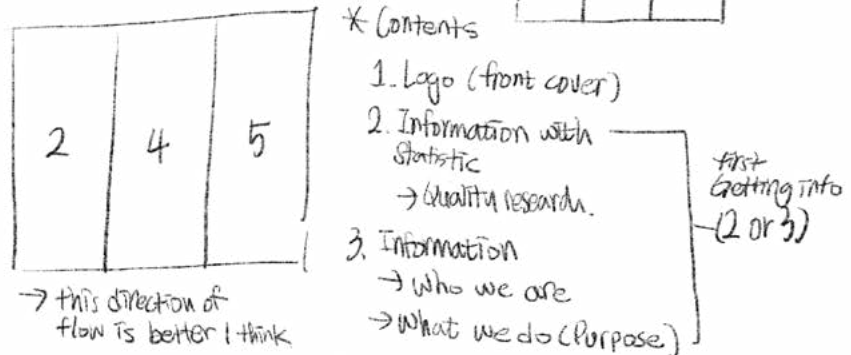 2 4 5
→ this direction of
flow is better I think
* Contents
1. Logo (front cover)
2. Information with
Statistic
→ Quality research.
3. Information
→ Who we are
→ What we do (Purpose)
first
Getting info
(2 or 3)